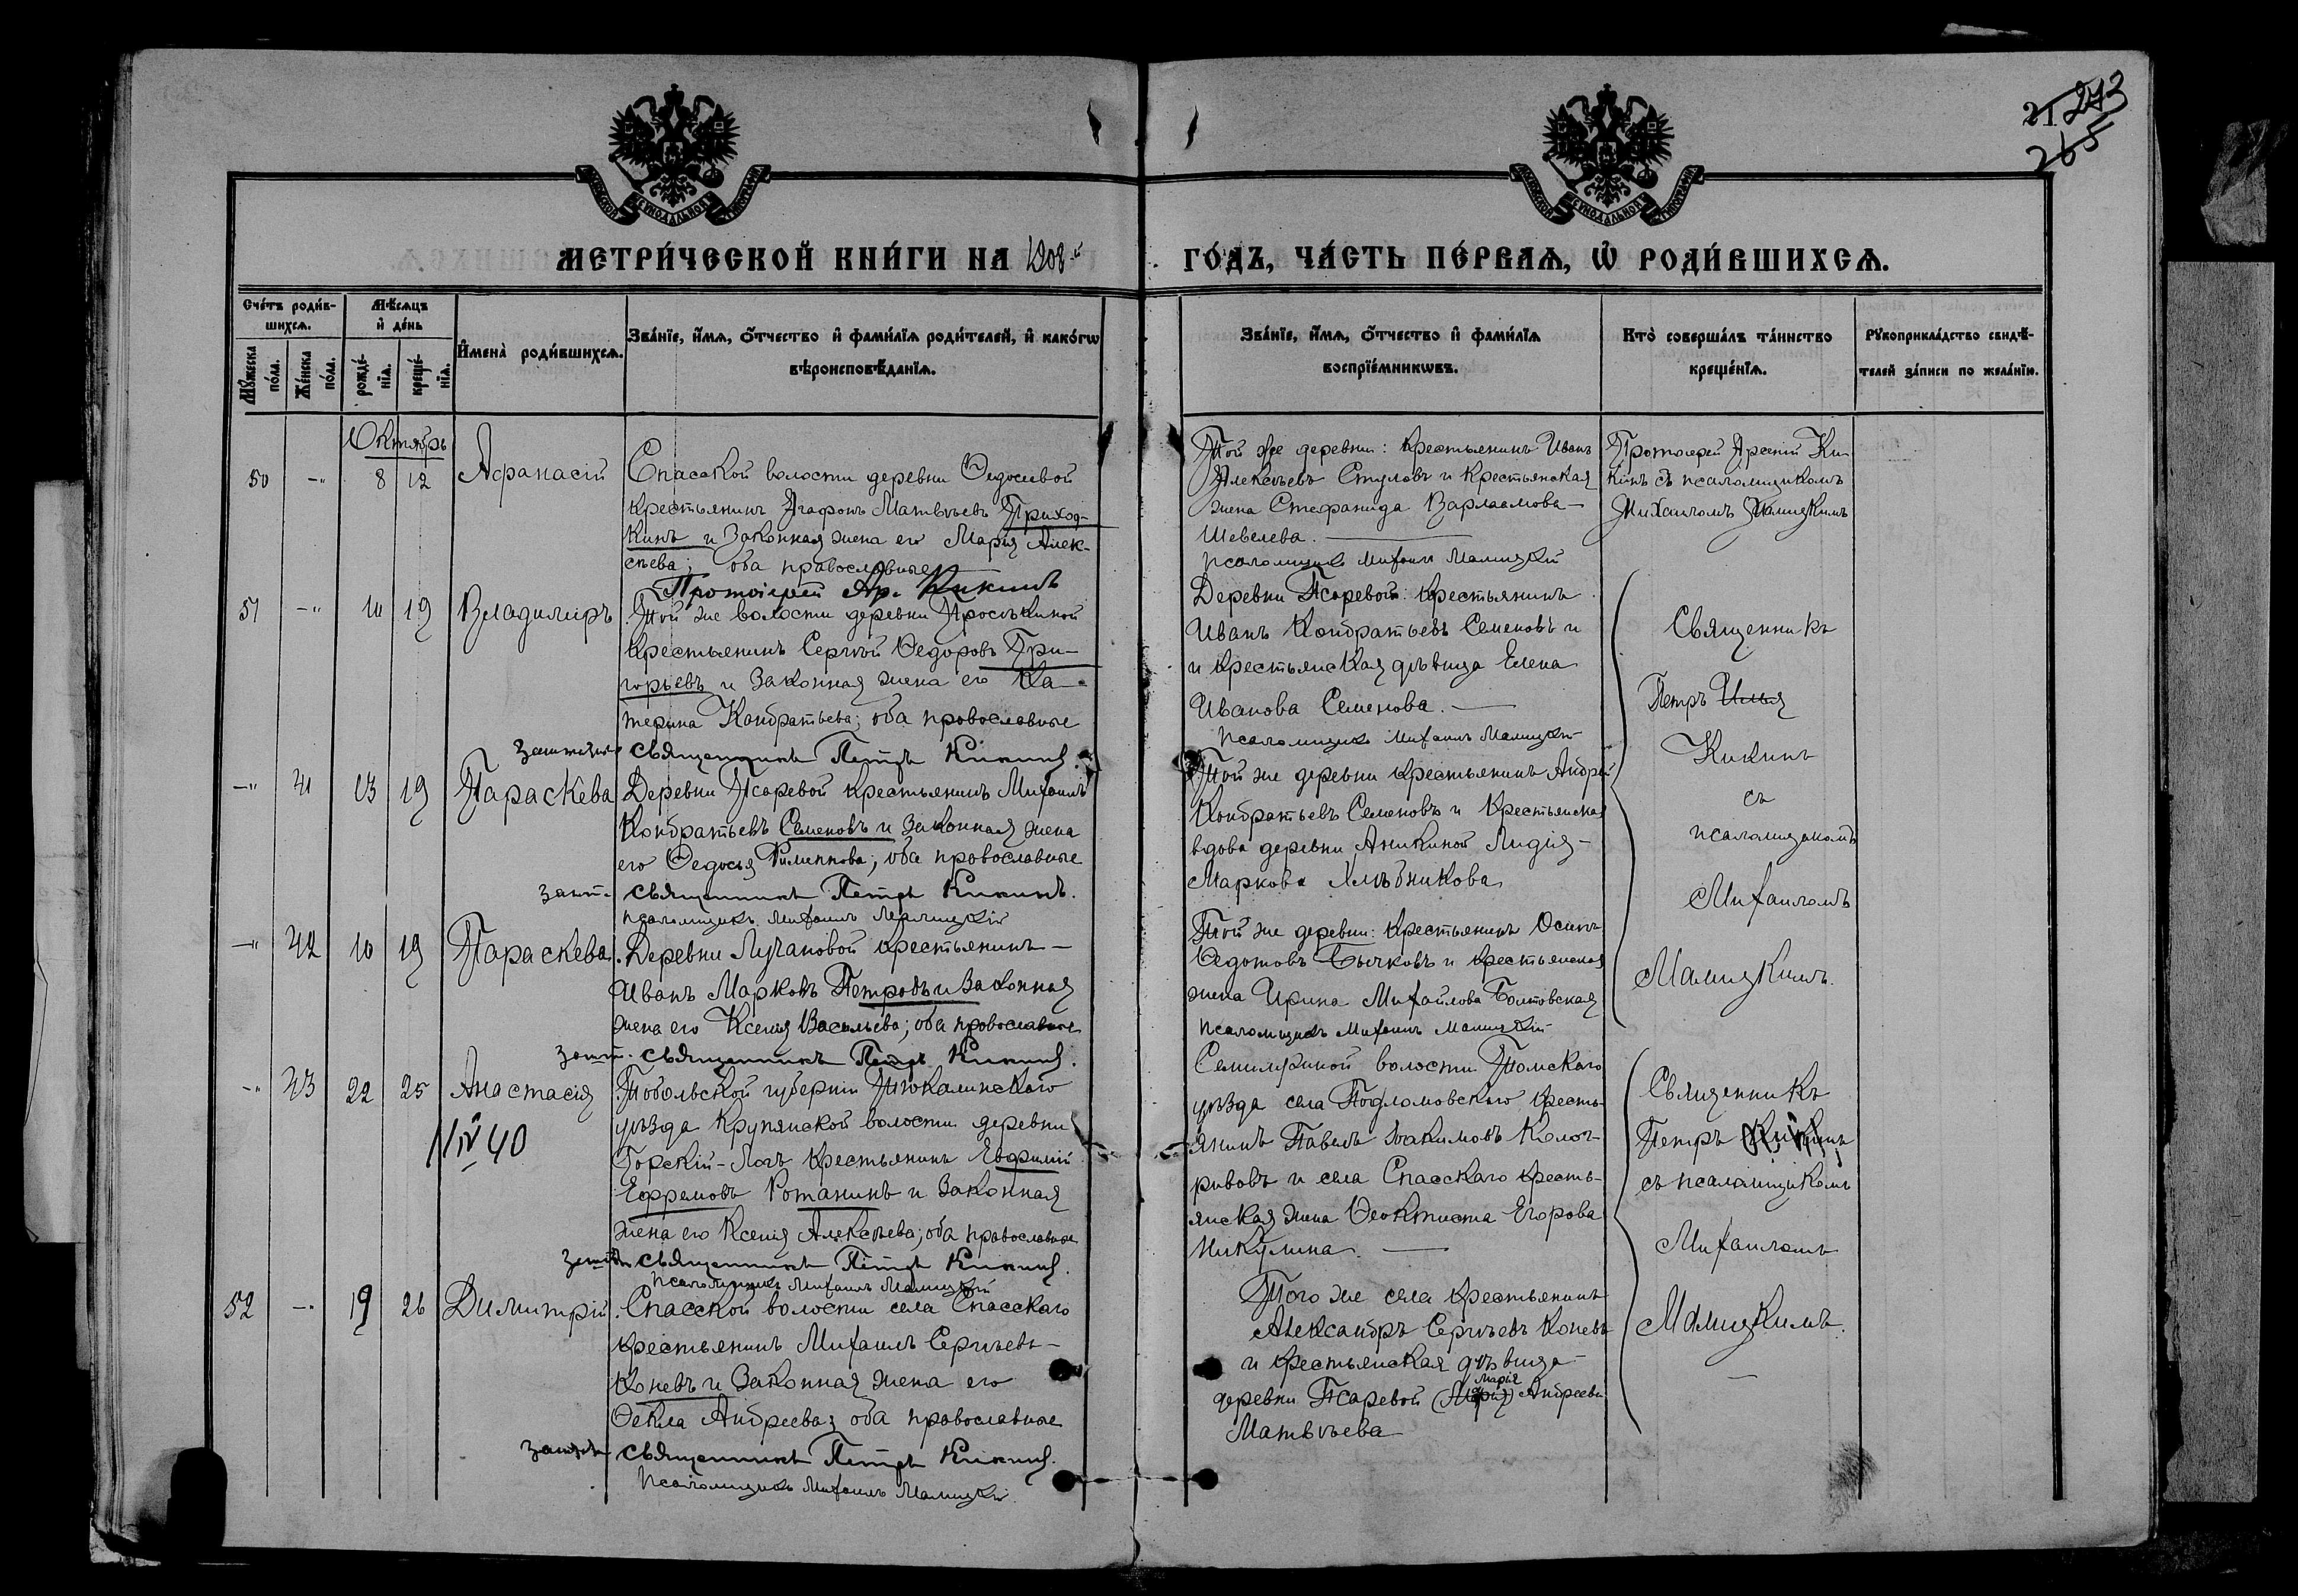 21 273
265
МЕТРИ́ЧЕСКОЙ КНИ́ГИ НА 1908-й
ГО́ДЪ, ЧА́СТЬ ПЕ́РВАѦ, Ѡ҆ РОДИ́ВШИХСѦ.
Сче́тъ роди́в-
шихсѧ.
Мѣ́сѧцъ
и҆ де́нь
Мꙋ́жеска
по́ла.
Же́нска
по́ла.
рожде́-
нїѧ.
креще́-
нїѧ.
И҆мена̀ роди́вшихсѧ.
Зва́нїе, и҆́мѧ, ѻ҆́тчество и҆ фами́лїѧ роди́телей, и҆ како́гѡ
вѣроисповѣ́данїѧ.
Зва́нїе, и҆́мѧ, ѻ҆́тчество и҆ фами́лїѧ
воспрїе́мникѡвъ.
Кто̀ соверша́лъ та́инство
креще́нїѧ.
Рꙋкоприкла́дство свидѣ́-
телей за́писи по жела́нїю.
Октябрь
50 -" 8 12 Афанасій
Спасской волости деревни Федосеевой
крестьянинъ Агафонъ Матвѣевъ Приход-
кинъ и законная жена его Марія Алек-
сѣева; оба православные
Протоіерей Ар. Кикинъ
Той же деревни: крестьянинъ Иванъ
Алексѣевъ Стуловъ и крестьянская
жена Стефанида Варлаамова
Шевелева.
псаломщикъ Михаилъ Малицкій
Протоіерей Арсеній Ки-
кинъ съ псаломщикомъ
Михаиломъ Малицкимъ
51 -" 10 19 Владимиръ
Той же волости деревни Просѣкиной
крестьянинъ Сергѣй Федоровъ Гри-
горьевъ и законная жена его Ка-
терина Кондратьева; оба православные
священникъ Петръ Кикинъ.
Деревни Псаревой: крестьянинъ
Иванъ Кондратьевъ Семеновъ и
и крестьянская дѣвица Елена
Иванова Семенова.
псаломщикъ Михаилъ Малицкій
Священникъ
Петръ
Кикинъ
съ
псаломщикомъ
Михаиломъ
Малицкимъ.
-" 41 13 19 Параскева
Деревни Псаревой крестьянинъ Михаилъ
Кондратьевъ Семеновъ и законная жена
его Федосья Филиппова; оба православные
священникъ Петръ Кикинъ.
псаломщикъ Михаилъ Малицкій
Той же деревни крестьянинъ Андрей
Кондратьевъ Семеновъ и крестьянская
вдова деревни Аникиной Лидія
Маркова Хлѣбникова
-" 42 10 19 Параскева
Деревни Лучановой крестьянинъ
Иванъ Марковъ Петровъ и законная
жена его Ксенія Васильева; оба православные
священникъ Петръ Кикинъ.
Той же деревни: крестьянинъ Осипъ
Федотовъ Бычковъ и крестьянская
жена Ирина Михайлова Болтовская
псаломщикъ Михаилъ Малицкій
-" 43 22 25 Анастасія
11 IV 40
Тобольской губерніи Тюкалинскаго
уѣзда Крупянской волости деревни
Горскій-Логъ крестьянинъ Евфимій
Ефремовъ Ротанинъ и законная
жена его Ксенія Алексѣева; оба православные
священникъ Петръ Кикинъ.
псаломщикъ Михаилъ Малицкій
Семилужной волости Томскаго
уѣзда села Подломовскаго кресть-
янинъ Павелъ Іоакимовъ Колог-
ривовъ и села Спасскаго кресть-
янская жена Феоктиста Егорова
Никулина.
Священникъ
Петръ Кикинъ
съ псаломщикомъ
Михаиломъ
Малицкимъ.
52 -" 19 26 Димитрій
Спасской волости села Спасскаго
крестьянинъ Михаилъ Сергѣевъ
Коневъ и законная жена его
Фекла Андреева; оба православные
священникъ Петръ Кикинъ.
псаломщикъ Михаилъ Малицкій.
Того же села крестьянинъ
Александръ Сергѣевъ Коневъ
и крестьянская дѣвица
Марія
деревни Псаревой (Марія) Андреева
Матвѣева